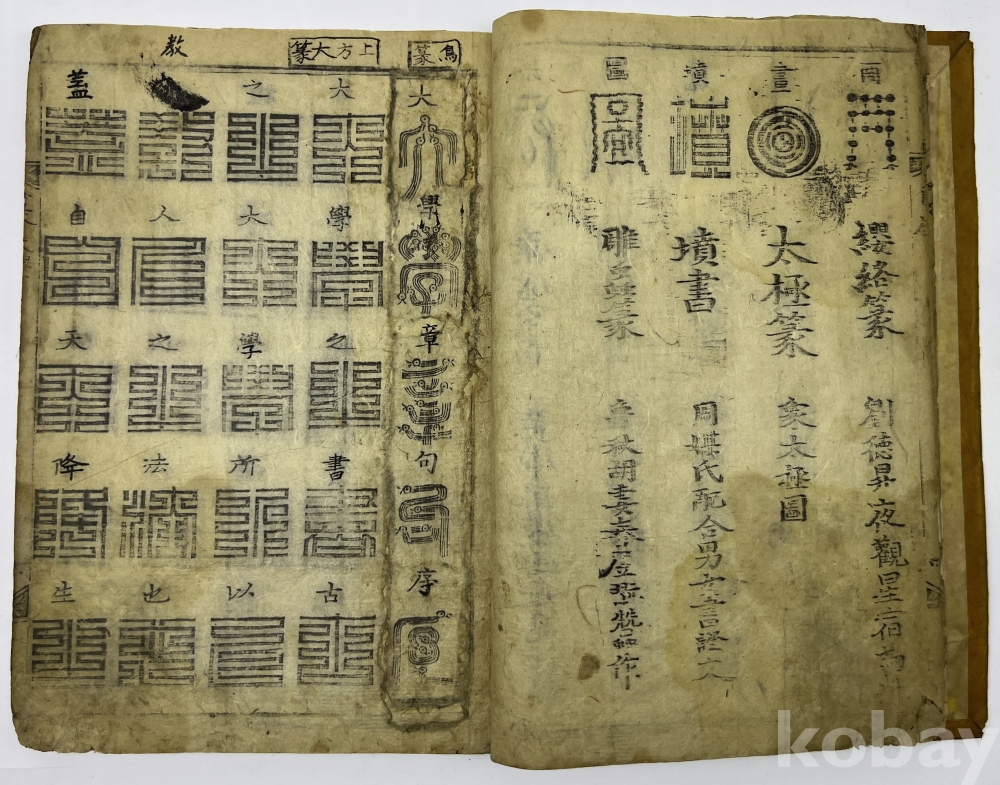 纓絡篆
劉德昇夜觀星宿
畫
太極篆
象太極圖
墳
墳書
周媒氏配合男女書證文
圖
雕蟲篆
鳥篆
大學章句序
上方大篆
大學之書古
之大學所以
教人之法也
蓋自天降生
kobay